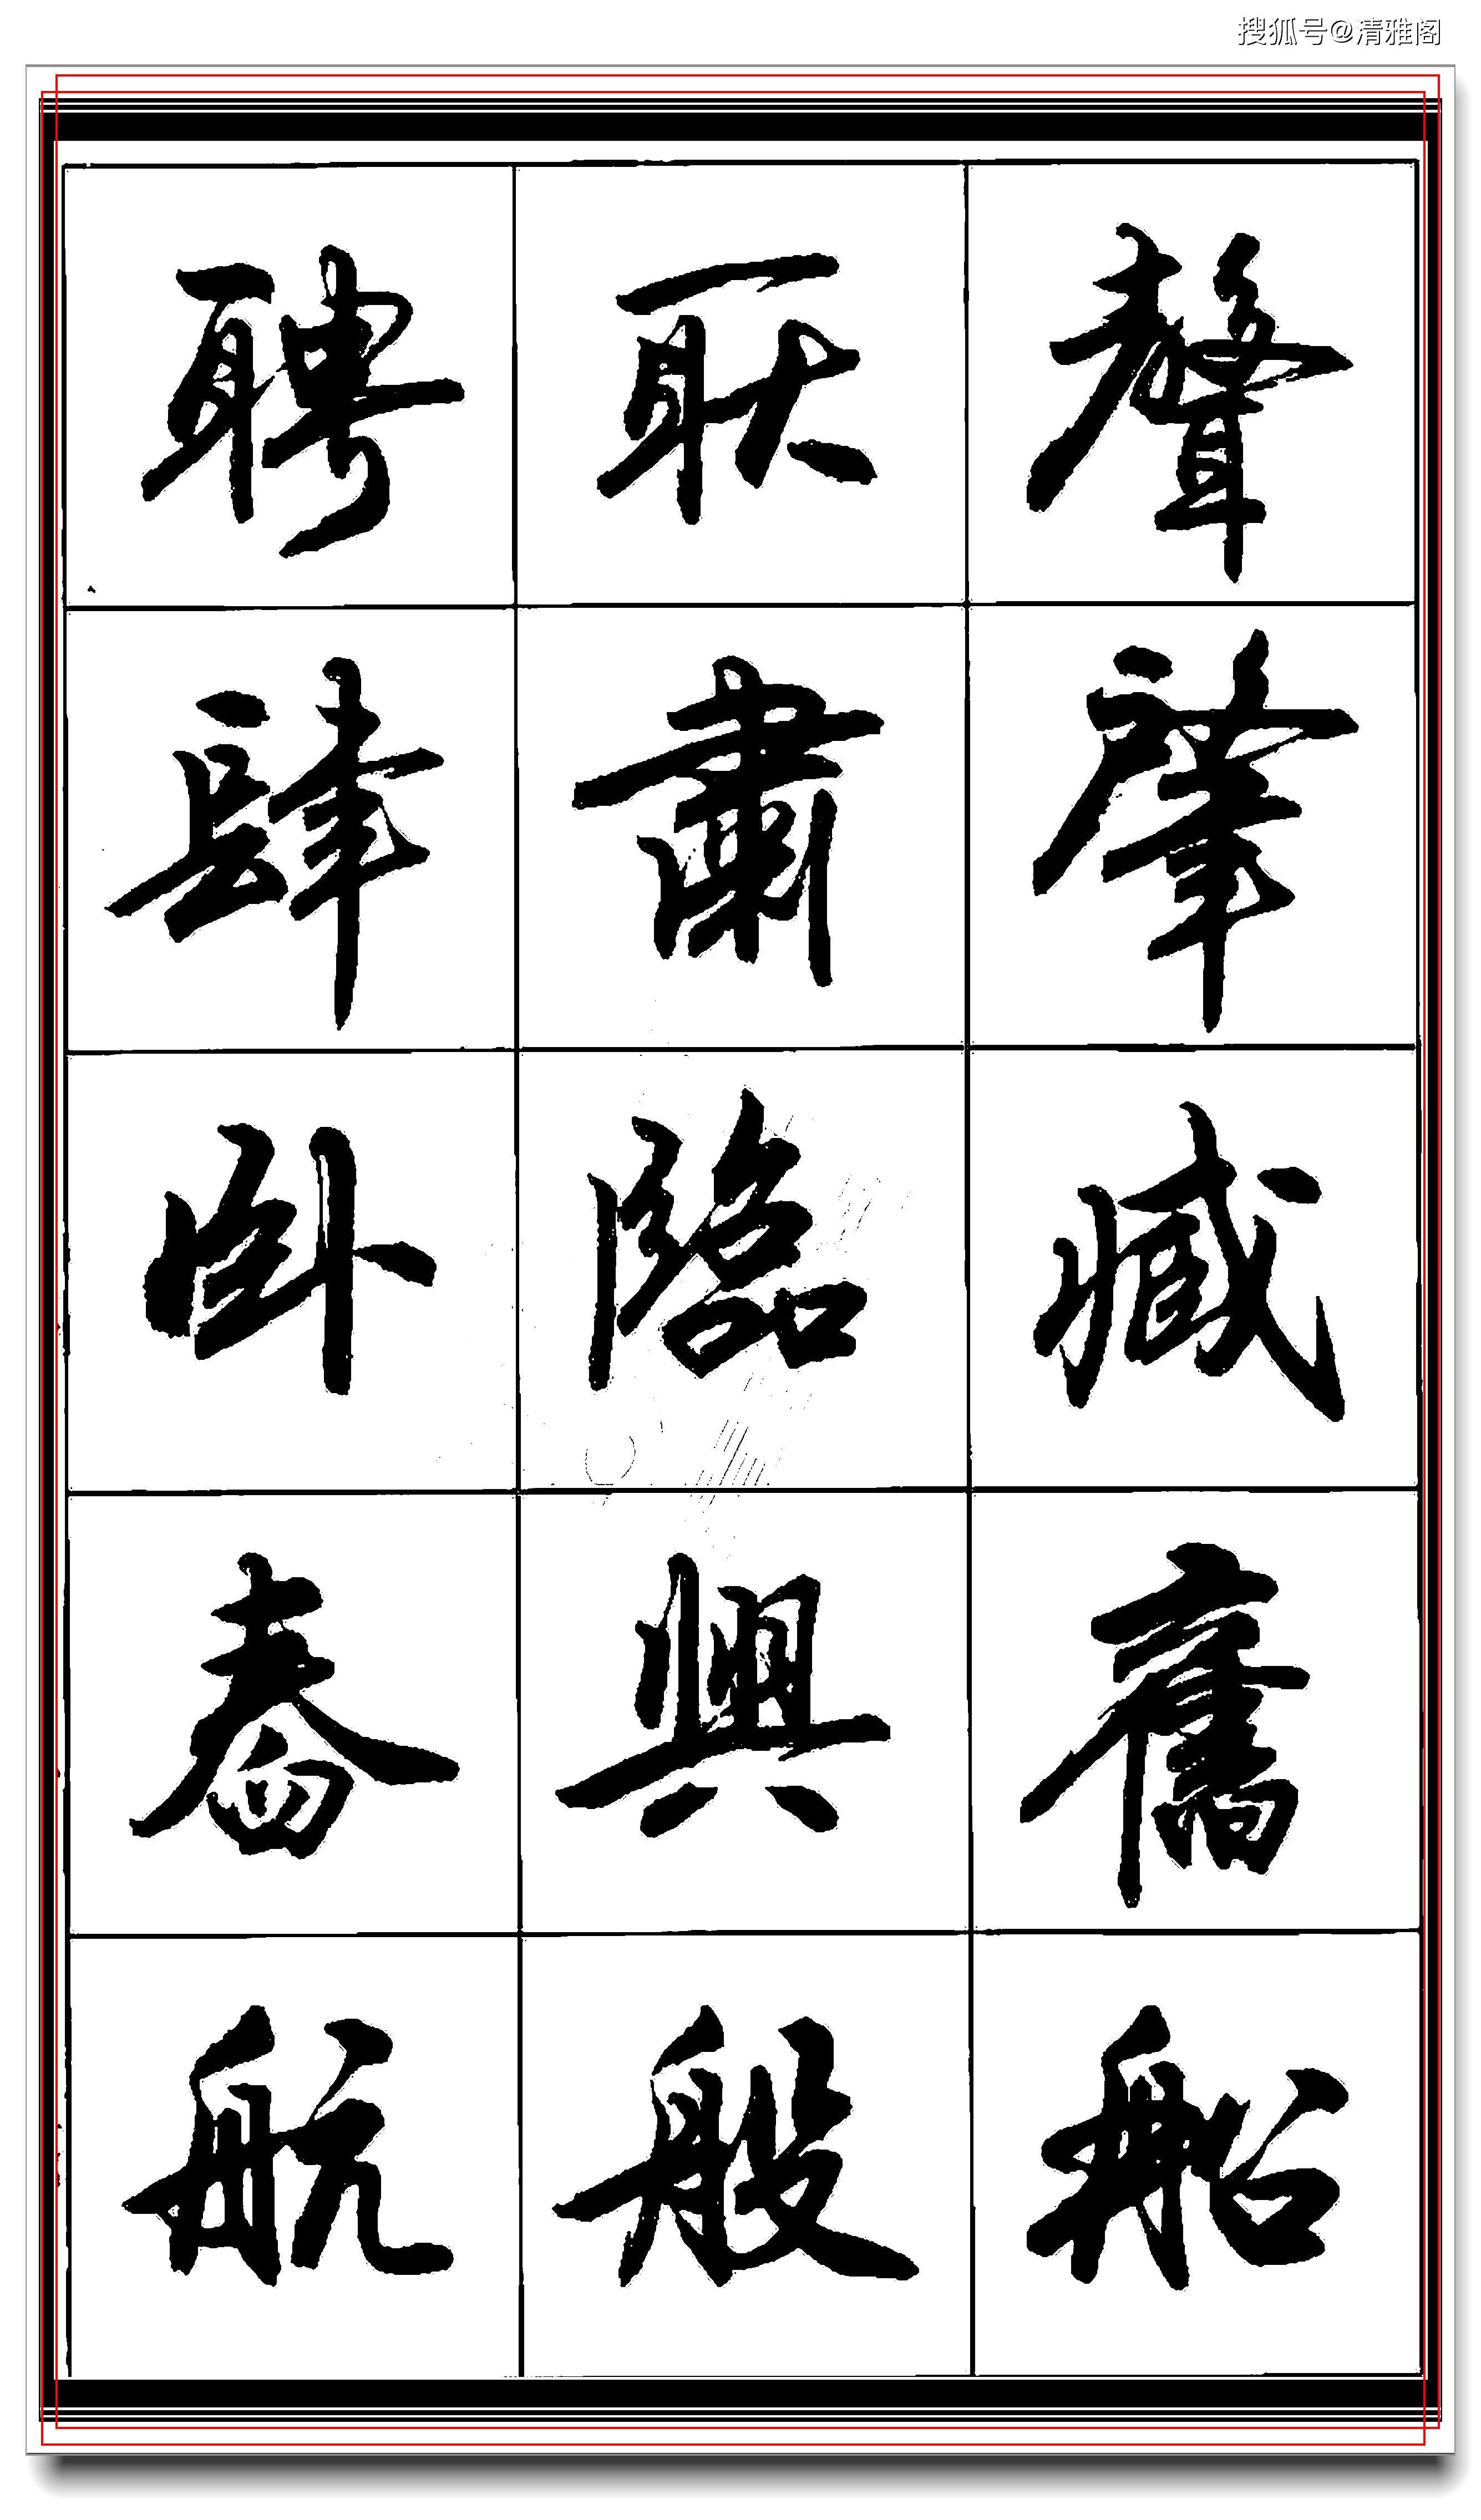 搜狐号@清雅阁
聘取聲
肆肅肇
卧臨臧
舂興舊
航般船